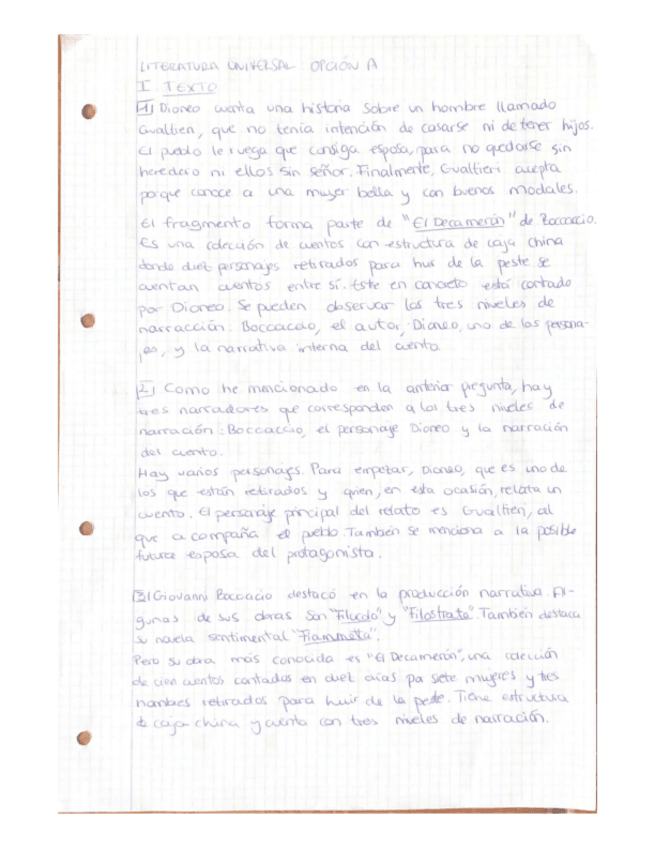 LITERATURA UNIVERSAL OPCIÓN A
I. TEXTO
1) Dioneo cuenta una historia sobre un hombre llamado
Gualtieri, que no tenía intención de casarse ni de tener hijos.
El pueblo le ruega que consiga esposa, para no quedarse sin
heredero ni ellos sin señor. Finalmente, Gualtieri acepta
porque conoce a una mujer bella y con buenos modales.
El fragmento forma parte de "El Decamerón" de Boccaccio.
Es una colección de cuentos con estructura de caja china
donde diez personajes retirados para huir de la peste se
cuentan cuentos entre sí. Este en concreto está contado
por Dioneo. Se pueden observar los tres niveles de
narracción: Boccaccio, el autor, Dioneo, uno de los persona-
jes, y la narrativa interna del cuento.
2) Como he mencionado en la anterior pregunta, hay
tres narradores que corresponden a los tres niveles de
narración: Boccaccio, el personaje Dioneo y la narración
del cuento.
Hay varios personajes. Para empezar, Dioneo, que es uno de
los que están retirados y quien, en esta ocasión, relata un
cuento. El personaje principal del relato es Gualtieri, al
que acompaña el pueblo. También se menciona a la posible
futura esposa del protagonista.
3) Giovanni Boccaccio destacó en la producción narrativa. Al-
gunas de sus obras son "Filocolo" y "Filostrato". También destaca
su novela sentimental "Fiammeta".
Pero su obra más conocida es "El Decamerón", una colección
de cien cuentos contados en diez días por siete mujeres y tres
hombres retirados para huir de la peste. Tiene estructura
de caja china y cuenta con tres niveles de narración.